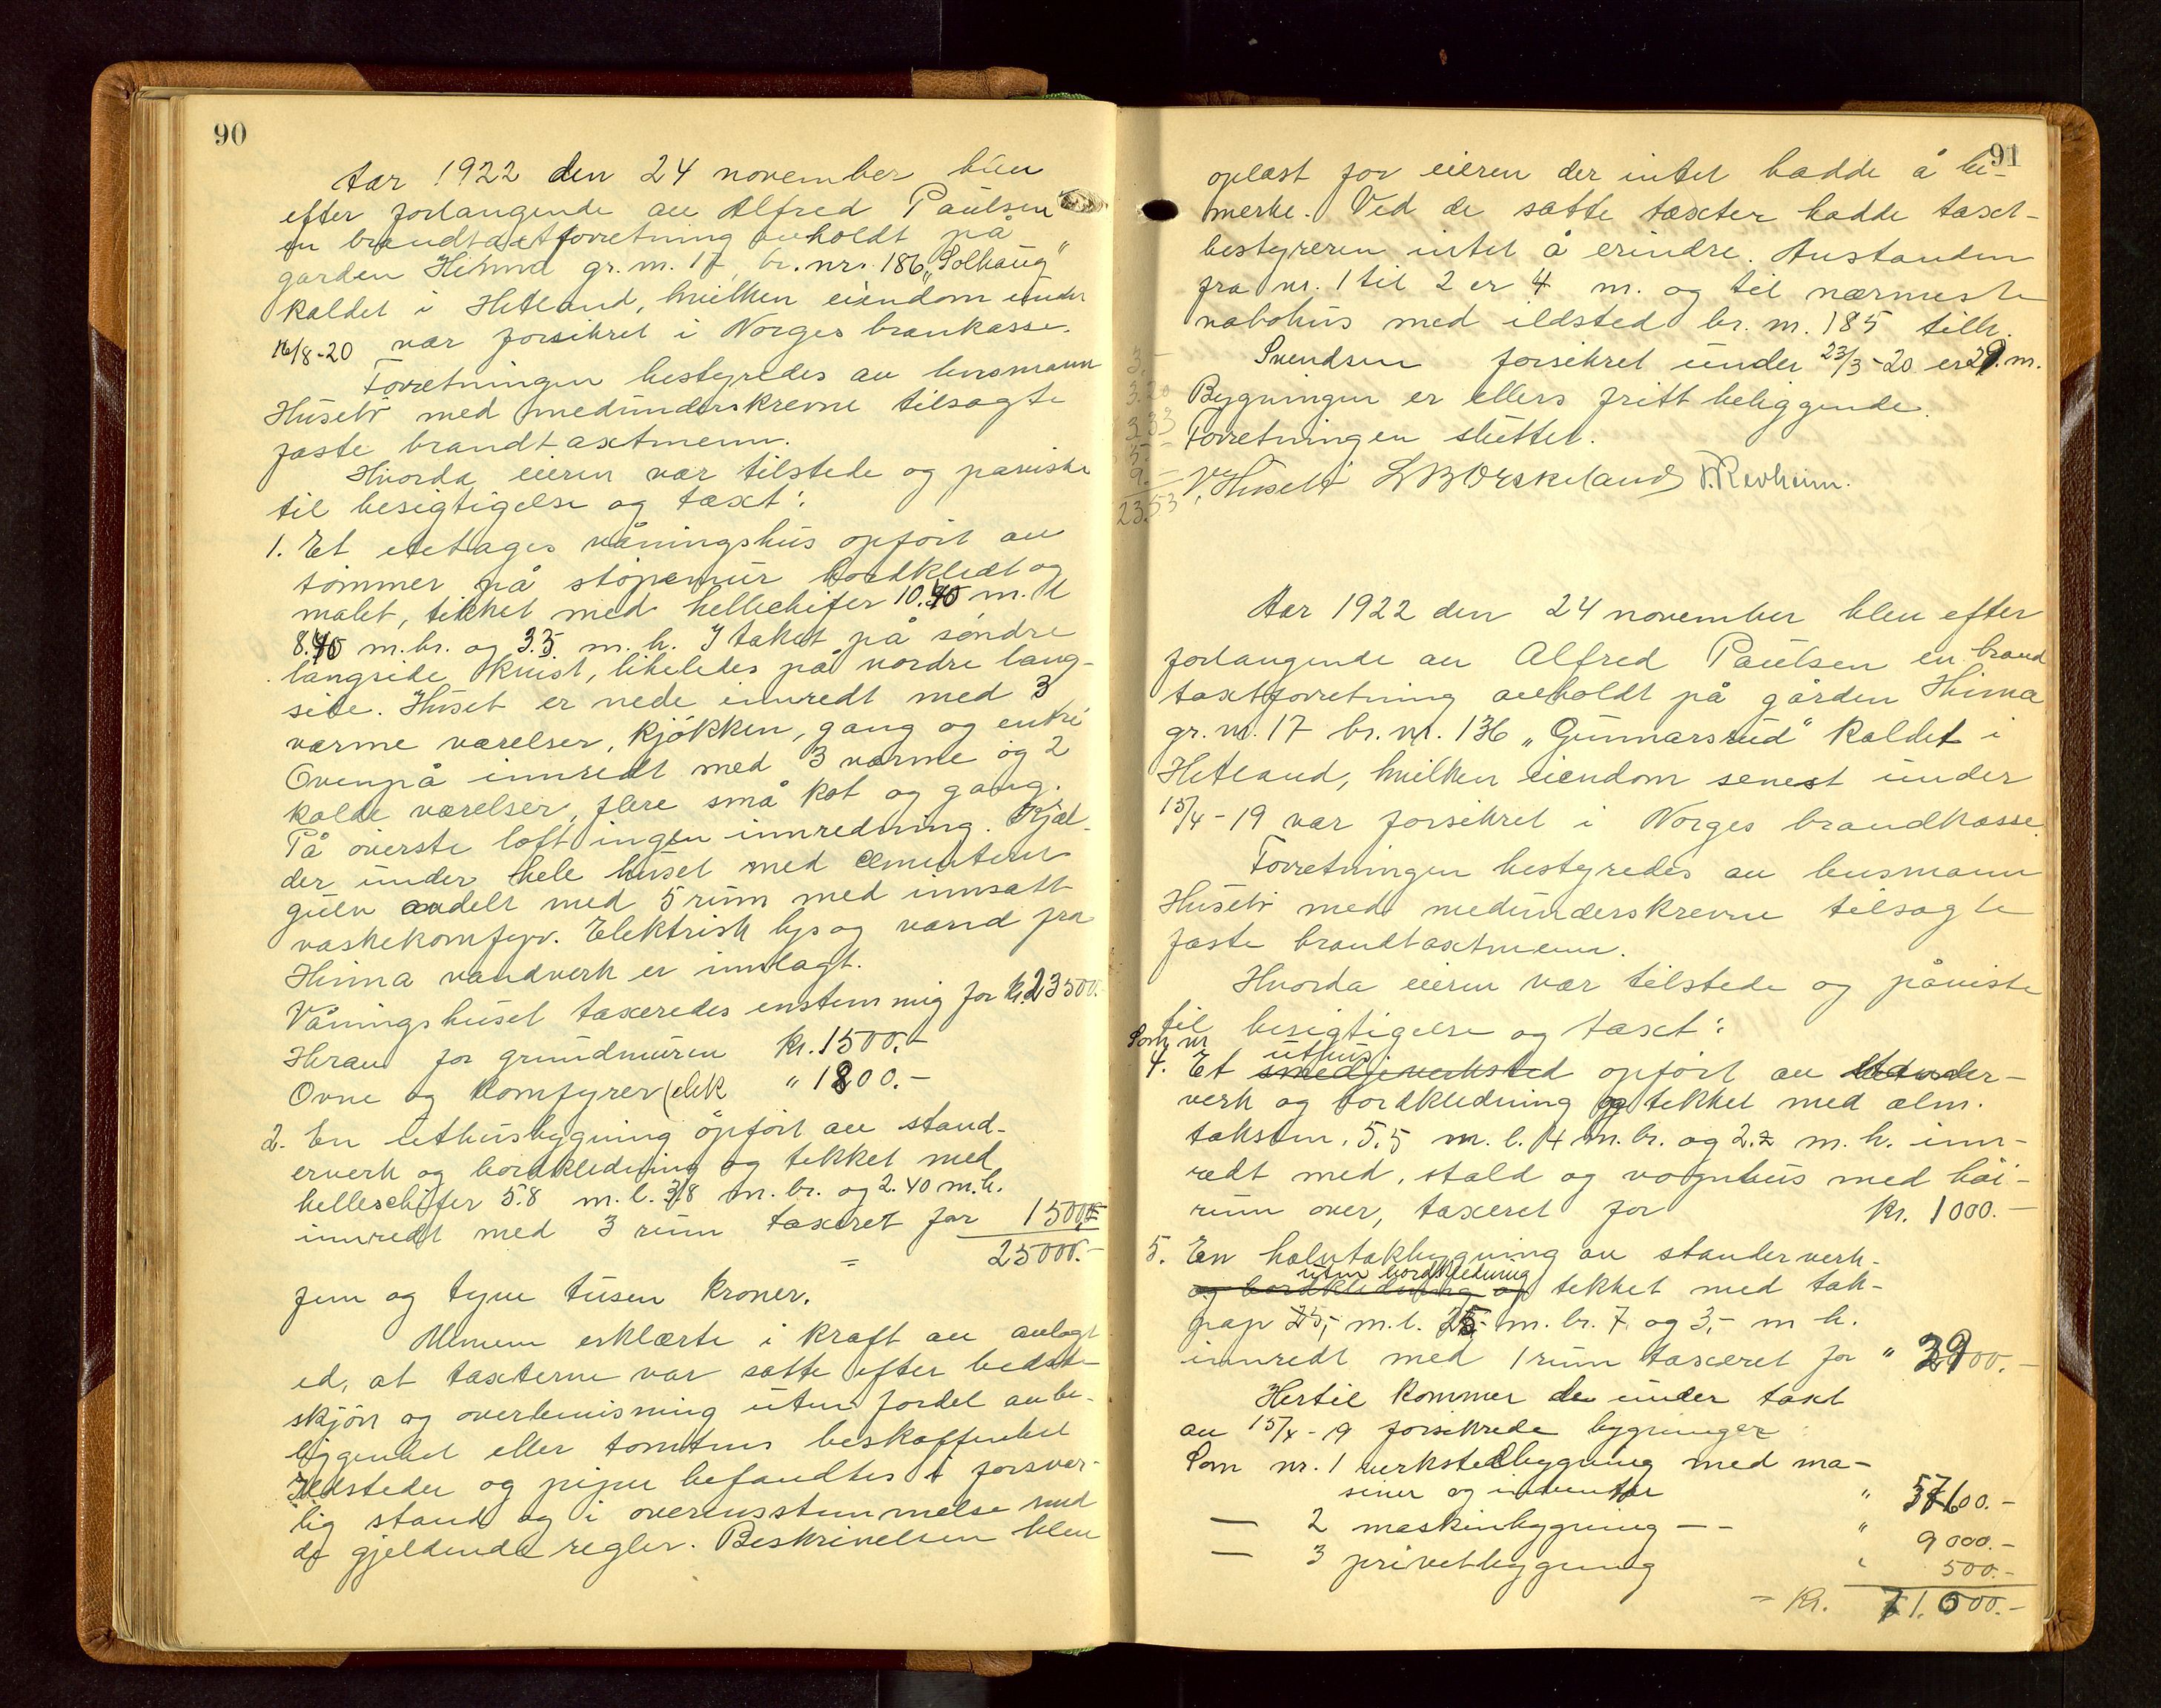 90
Aar 1922 den 24 november blev
efter forlangende av Alfred Paulsen
en brandtaxtforretning avholdt på
garden Hinna gr. nr. 17, br. nr. 186 „Solhaug"
kaldet i Hetland, hvilken eiendom under
16/8-20 var forsikret i Norges brankasse.
Forretningen bestyredes av lensmann
Husebö med medunderskrevne tilsagte
faste brandtaxtmenn.
Hvorda eieren var tilstede og paviste
til besigtigelse og taxt:
1. Et etetages våningshus opfört av
tömmer på stöpemur bordkledt og
malet, tekket med helleskifer 10.40 m. l
8.40 m. br. og 3.5 m. h. I taket på söndre
langside kvist, likeledes på nordre lang-
side. Huset er nede innredt med 3
varme værelser, kjökken, gang og entré
Ovenpå innredt med 3 varme og 2
kolde værelser, flere små kot og gang.
På överste loft ingen innredning. Kjæl-
der under hele huset med cementert
gulv avdelt med 5 rum med innsatt
vaskekomfyr. Elektrisk lys og vand fra
Hinna vandverk er innlagt.
Våningshuset taxeredes enstemmig for kr. 23500.-
Herav for grundmuren kr. 1500.-
Ovne og komfyrer (elek " 1800.-
2. En uthusbygning opfört av stand-
erverk og bordkledning og tekket med
helleschifer 5.8 m. l. 3.8 m. br. og 2.40 m. h.
innredt med 3 rum taxeret for 1500.-
= 25000.-
fem og tyve tusen kroner.
Mennene erklærte i kraft av avlagt
ed, at taxterne var satte efter bedste
skjön og overbevisning uten fordel av be-
liggenhet eller tomtens beskaffenhet
Ildsteder og piper befandtes i forsvar-
lig stand og i overensstemmelse med
de gjeldende regler. Beskrivelsen blev
91
oplæst for eieren der intet hadde å be-
merke. Ved de satte taxter hadde taxt-
bestyreren intet å erindre. Avstanden
fra nr. 1 til 2 er 4 m. og til nærmeste
nabohus med ildsted br. nr. 185 tilh.
Svendsen forsikret under 23/3-20 er 29. m.
Bygningen er ellers fritt beliggende.
Forretningen sluttet.
V. Husebö L B Orskeland V. Revheim.
3.-
3.20
3.33
5.-
9.-
23.53
Aar 1922 den 24 november blev efter
forlangende av Alfred Paulsen en brand
taxtforretning avholdt på gården Hinna
gr. nr. 17 br. nr. 136 „Gunnarsrud" kaldet i
Hetland, hvilken eiendom senest under
15/4-19 var forsikret i Norges brandkasse.
Forretningen bestyredes av lensmann
Husebö med medunderskrevne tilsagte
faste brandtaxtmenn.
Hvorda eieren var tilstede og påviste
til besigtigelse og taxt:
Som nr
uthus
4. Et smedjeverksted opfört av stander-
verk og bordkledning og tekket med alm.
taksten. 5.5 m. l. 4 m. br. og 2.2 m. h. inn-
redt med, stald og vognhus med höi-
rum over, taxeret for kr. 1000.-
5. En halvtakbygning av standerverk
uten bordkledning
og bordkledning og tekket med tak-
pap 25,- m. l. 25,- m. br. 7 og 3,- m h.
innredt med 1 rum taxeret for " 2900.-
Hertil kommer de under taxt
av 15/4-19 forsikrede bygninger
Som nr. 1 verkstedbygning med ma-
siner og inventar " 57600.-
— 2 maskinbygning — - " 9000.-
— 3 privetbygning " 500.-
= Kr. 71.000.-